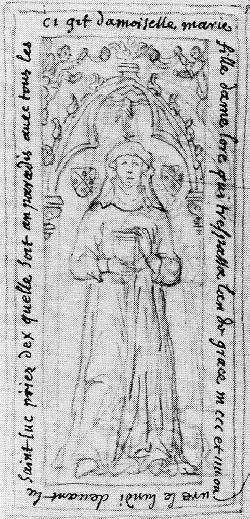 ci git damoiselle marie
fille dame lore qui trespassa lan de grace m ccc et
uvre le lundi devant la
Saint luc priez dex quelle soit an paradis avec tous les